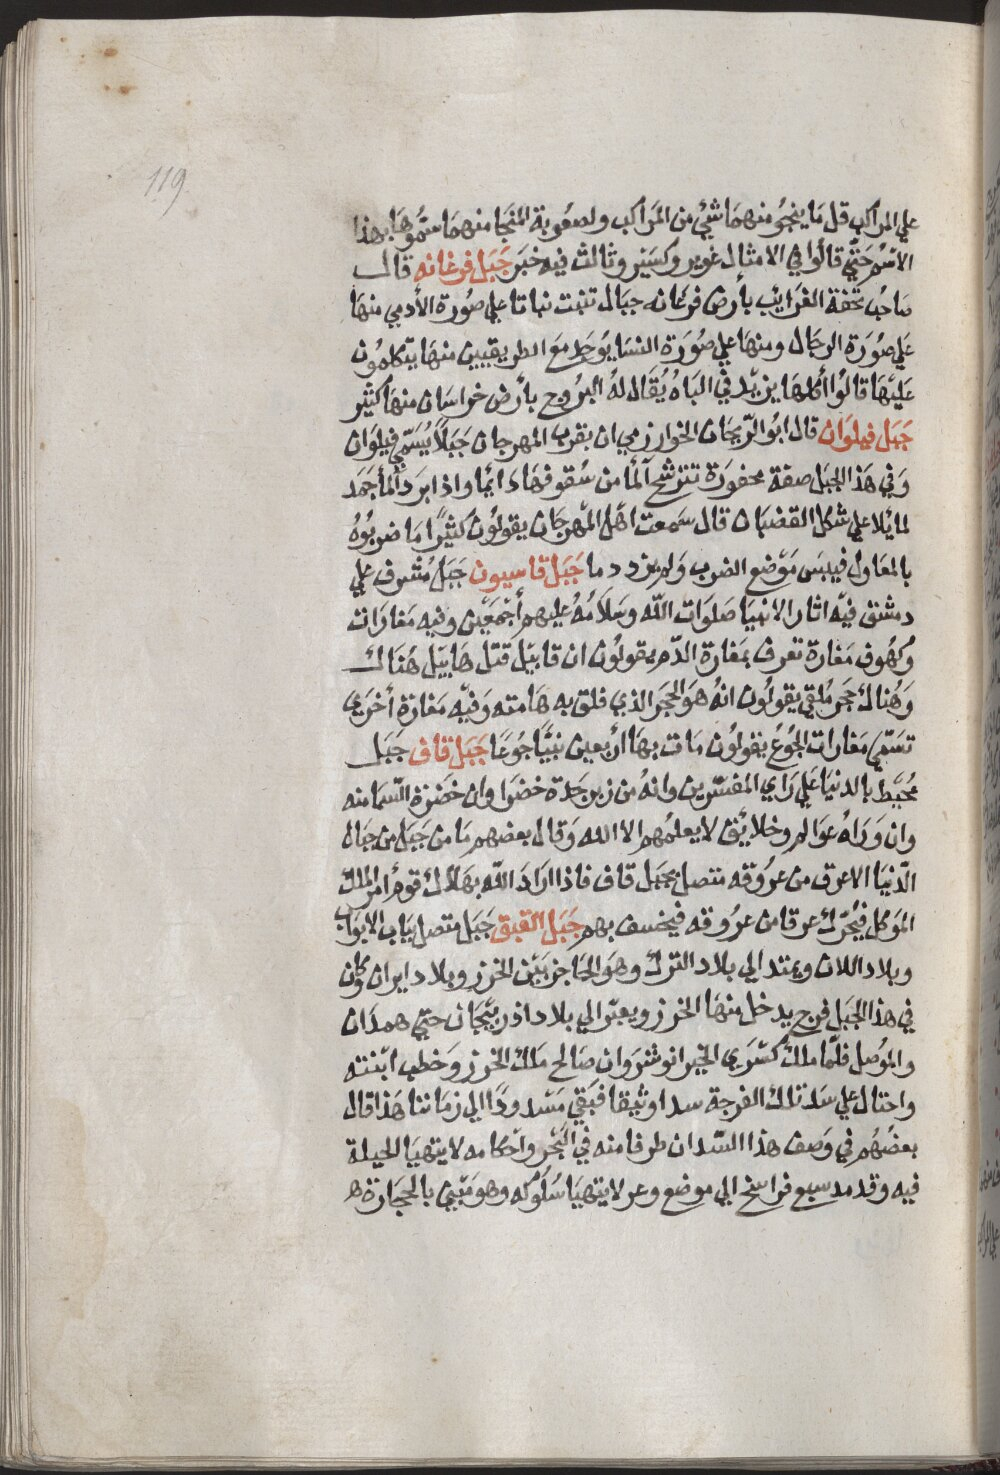 119
علي المراكب قل ما ينجو منهما شي من المراكب ولصعوبة المنجا منهما سموها بهذا
الاسم حتي قالوا في الامثال عوير وكسير وثالث فيه خبر جبل فرغانه قال
صاحب تحفة الغرايب بأرض فرغانه جبال تنبت نباتا علي صورة الأدمي منها
علي صورة الرجال ومنها علي صورة النسا يوجد مع الطريقيين منها يتكلمون
عليها قالوا أكلها يزيد في الباه يقال له البروح بأرض خراسان منها كثير
جبل فيلوان قال ابو الريحان الخوارزمي ان بقرب المهرجان جبلاً يسمي فيلوان
وفي هذا الجبل صفة محفورة تترشح ألما من سقوفها دايما واذا برد ألما جمد
لما يلا علي شكل القضبان قال سمعت اهل المهرجان يقولون كثيرًا ما ضربوه
بالمعاول فيبس موضع الضرب ولم يزدد ما جبل قاسيون جبل مشرف علي
دمشق فيه اثار الانبيا صلوات الله وسلامه عليهم أجمعين وفيه مغارات
وكهوف مغارة تعرف بمغارة الدم يقولون ان قابيل قتل هابيل هناك
وهناك حجر ملقي يقولون انه هو الحجر الذي فلق به هامته وفيه مغارة أخري
تسمي مغارات الجوع يقولون مات بها أربعين نبيًا جوعًا جبل قاف جبل
محيط بالدنيا علي راي المفسرين وانه من زبرجدة خضرا وان خضرة السما منه
وان وراه عوالم وخلايق لا يعلمهم الا الله وقال بعضهم ما من جبل من جبال
الدنيا الا عرق من عروقه متصل بجبل قاف فاذا اراد الله بهلاك قوم امر الملك
الموكل فيحرك عرقا من عروقه فيخسف بهم جبل القبق جبل متصل بباب الابواب
وبلاد اللان ويمتد الي بلاد الترك وهو الحاجز بين الخزر وبلاد ايران وكان
في هذا الجبل فرج يدخل منها الخزر ويعبر الي بلاد اذربيجان حتي همدان
والموصل فلما ملك كسري الخير انوشروان صالح ملك الخزر وخطب ابنته
واحتال علي سد تلك الفرجة سدا وثيقا فبقي مسدودًا الي زماننا هذا قال
بعضهم في وصف هذا السد ان طرفا منه في البحر واحكامه لا يتهيا الحيلة
فيه وقد مد سبع فراسخ الي موضع وعر لا يتهيا سلوكه وهو مبني بالحجارة ه